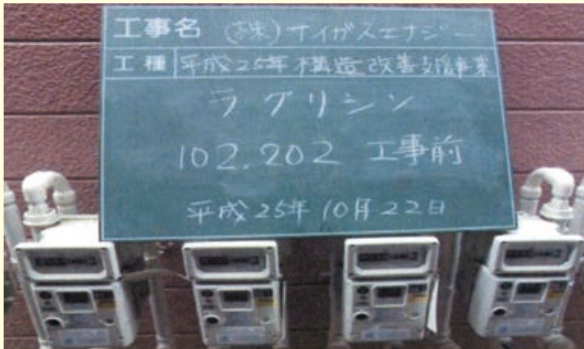 工事名 (株)サイガスエナジー
工種 平成25年構造改善支援事業
ラグリシン
102.202 工事前
平成25年10月22日